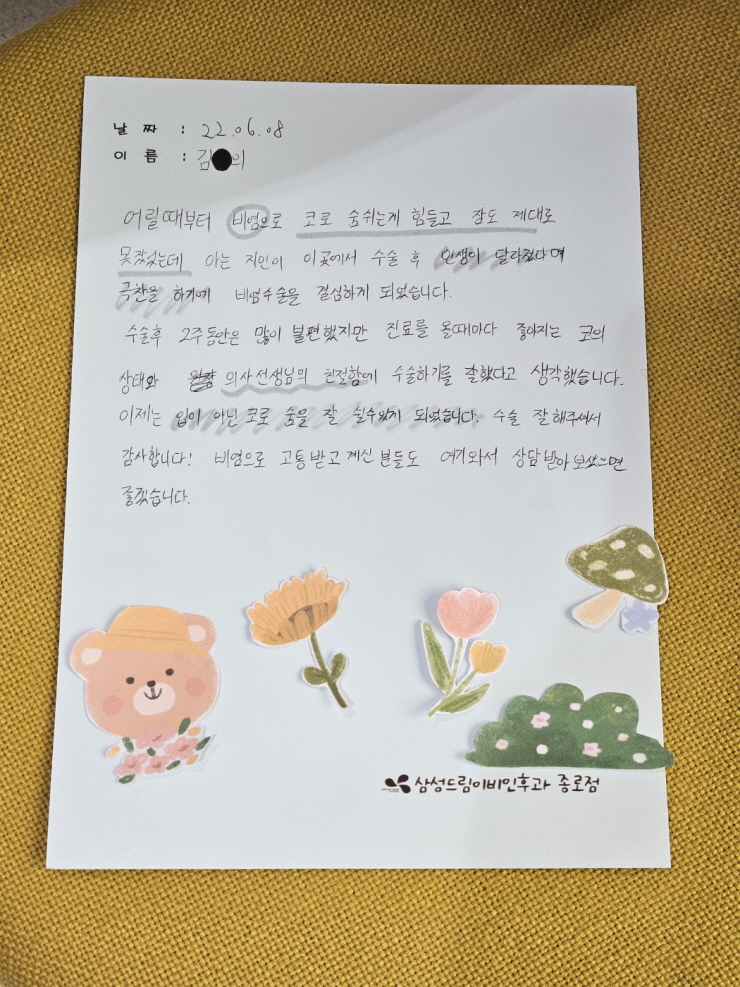 날 짜 : 22.06.08
이 름 : 김 의
어릴때부터 비염으로 코로 숨쉬는게 힘들고 잠도 제대로
못잤었는데 아는 지인이 이곳에서 수술 후 인생이 달라졌다며
극찬을 하기에 비염수술을 결심하게 되었습니다.
수술후 2주동안은 많이 불편했지만 진료를 올때마다 좋아지는 코의
상태와 의사선생님의 친절함에 수술하기를 잘했다고 생각했습니다.
이제는 입이 아닌 코로 숨을 잘 쉴수있게 되었습니다. 수술 잘해주셔서
감사합니다! 비염으로 고통받고 계신 분들도 여기와서 상담받아보셨으면
좋겠습니다.
삼성드림이비인후과 종로점